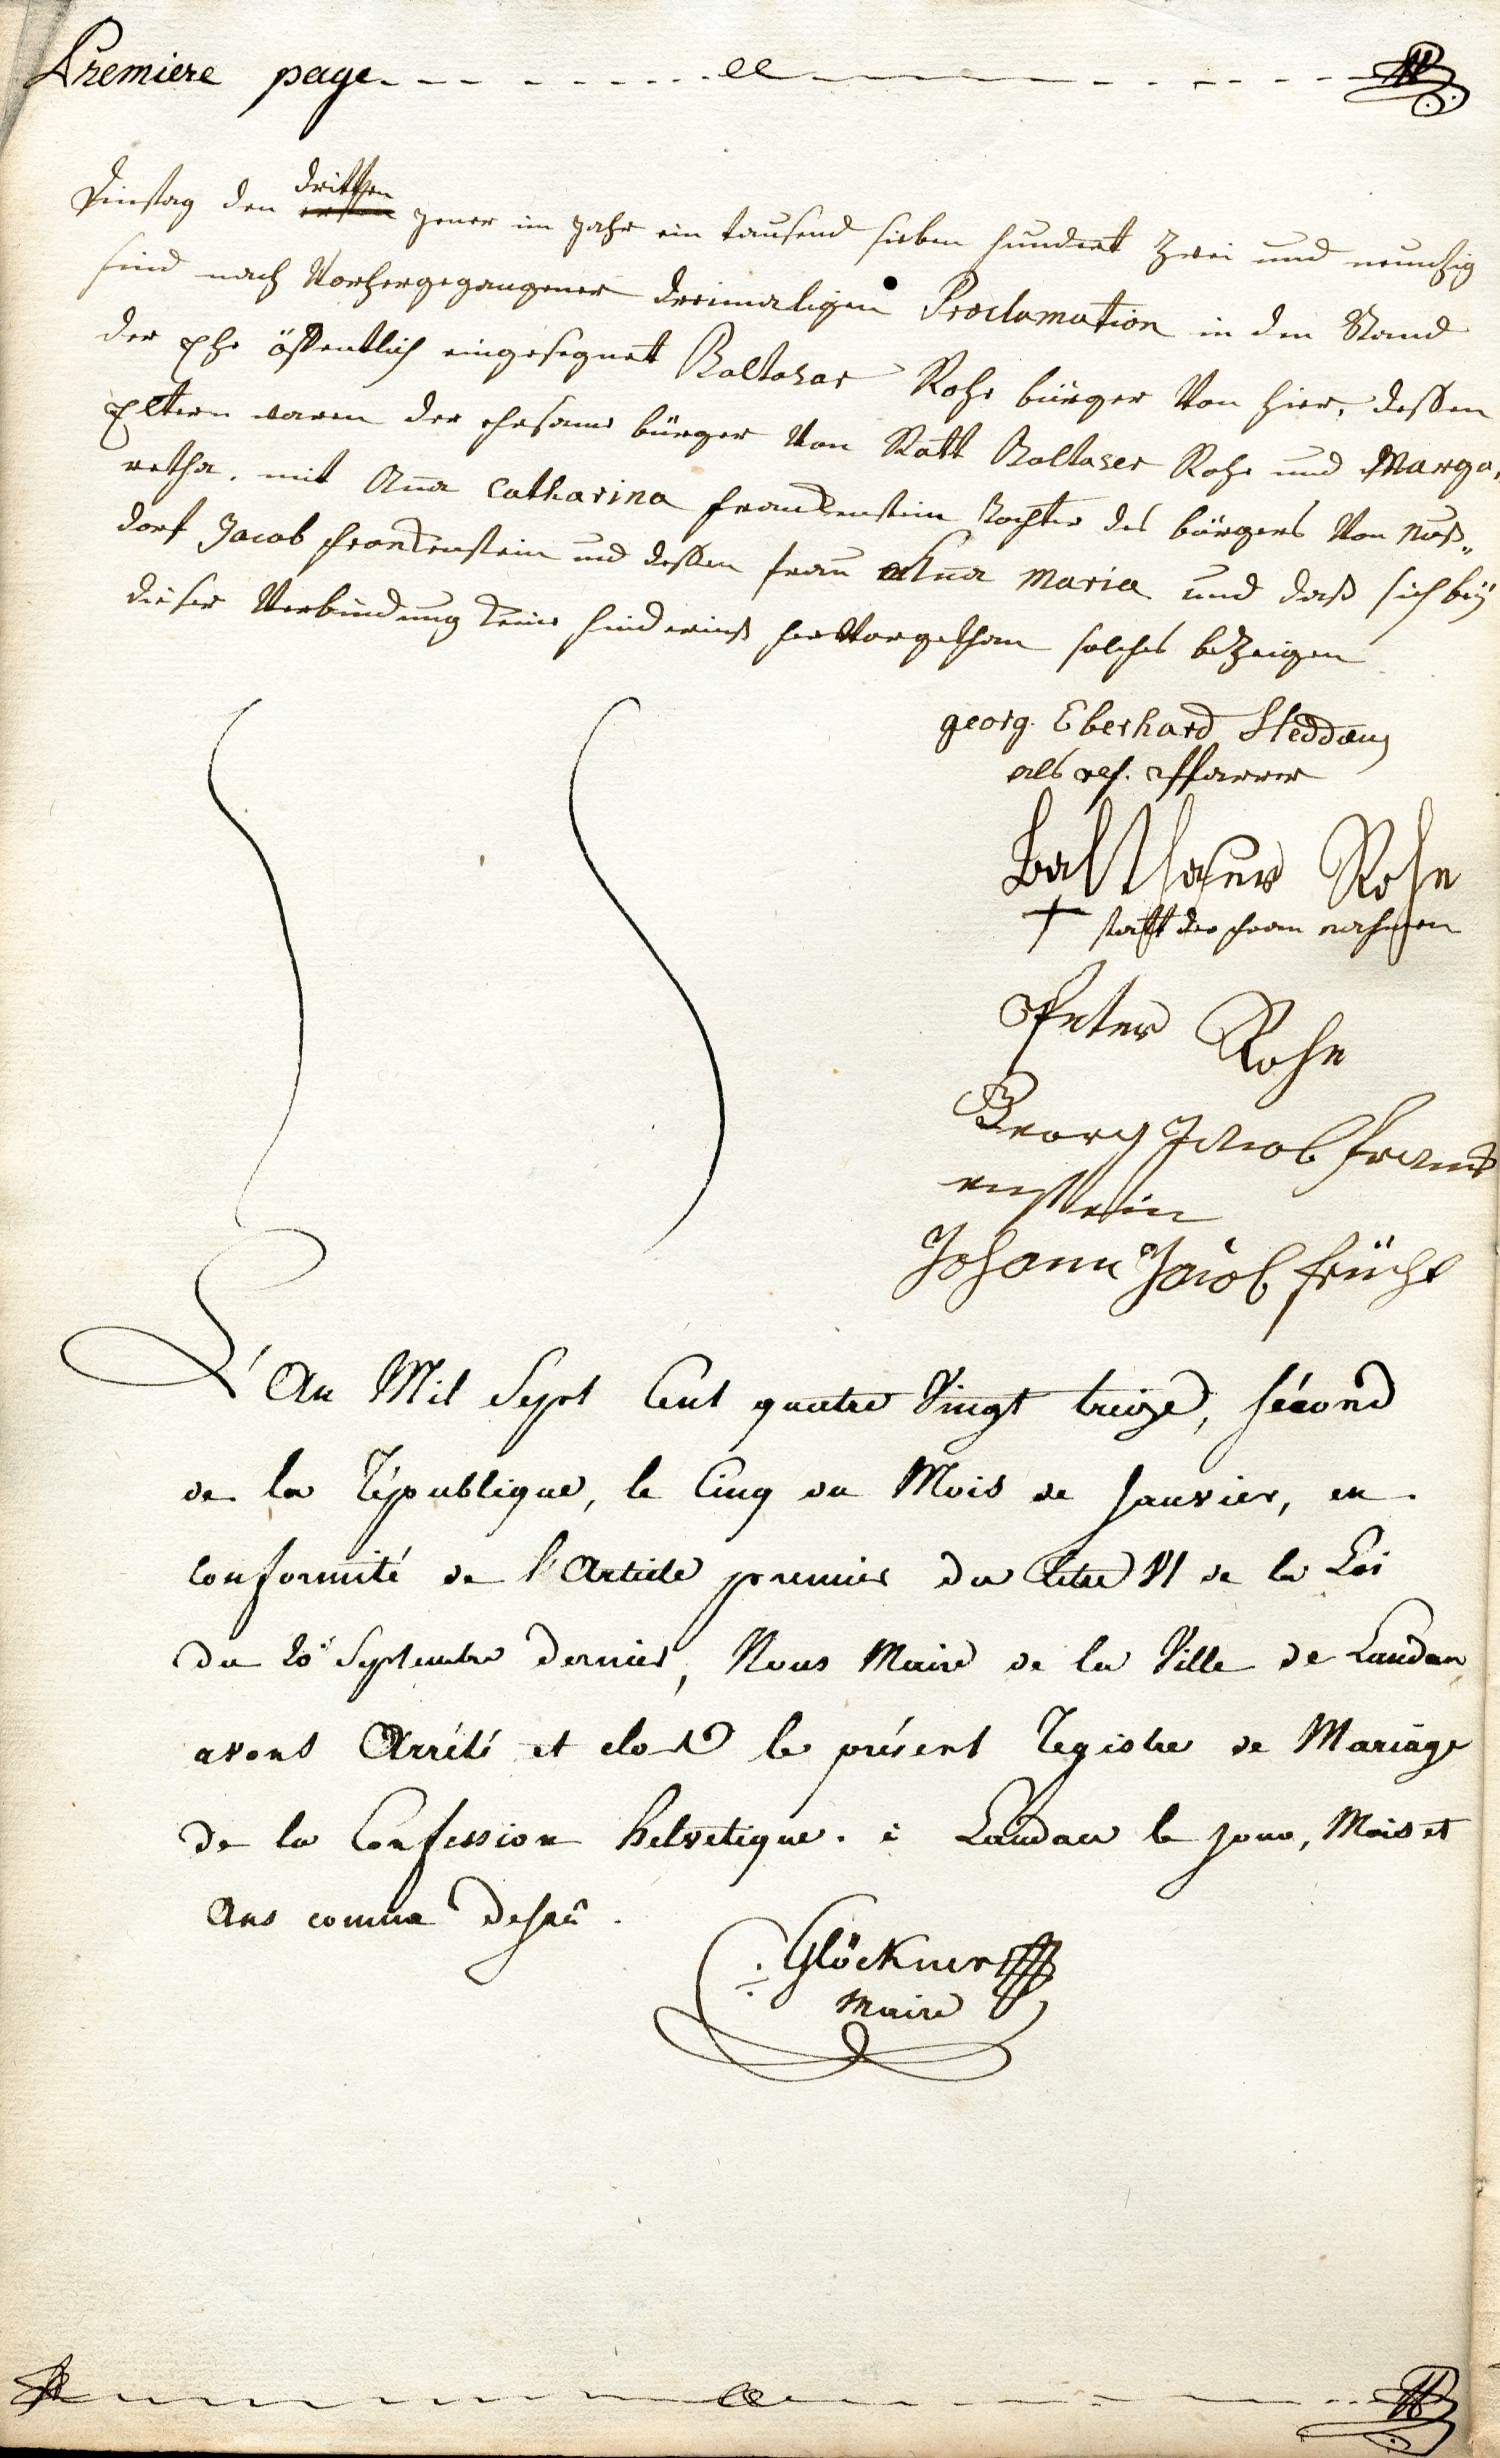 Premiere page
dritten
Dinstag den ersten Jener im Jahr ein tausend sieben hundert zwei und neunzig
sind nach Vorhergegangener dreimaligen Proclamation in den Stand
der Ehe öffentlich eingesegnet Baltasar Rohe bürger Von hier, dessen
Eltern waren der ehrsame bürger Von Baltaser Rohe und Marga,
retha. mit Aña Catharina Franckenstein Tochter des bürgers Von Nuß„
dorf Jacob Franckenstein und dessen frau Aña Maria und daß sich beÿ
dieser Verbindung keine hinderniß herVorgethan solches beZeigen
georg Eberhard
als ref. Pfarrer
Balthaser Rohe
+ statt der frau nahmen
Peter Rohe
Georg Jacob Franck
enstein
Johann Jacob früht
L'An Mil Sept Cent quatre Vingt treize, sécond
de la République, le Cinq du Mois de Janvier, en
conformité de l'Article premier du titre VI de la Loi
du 20 Septembre dernier, Nous Maire de la Ville de Landau
avons Arrété et clos le présent Registre de Mariage
de la Confession helvetique. à Landau le jour, Mois et
Ans comme dessû.
Glöckner
Maire